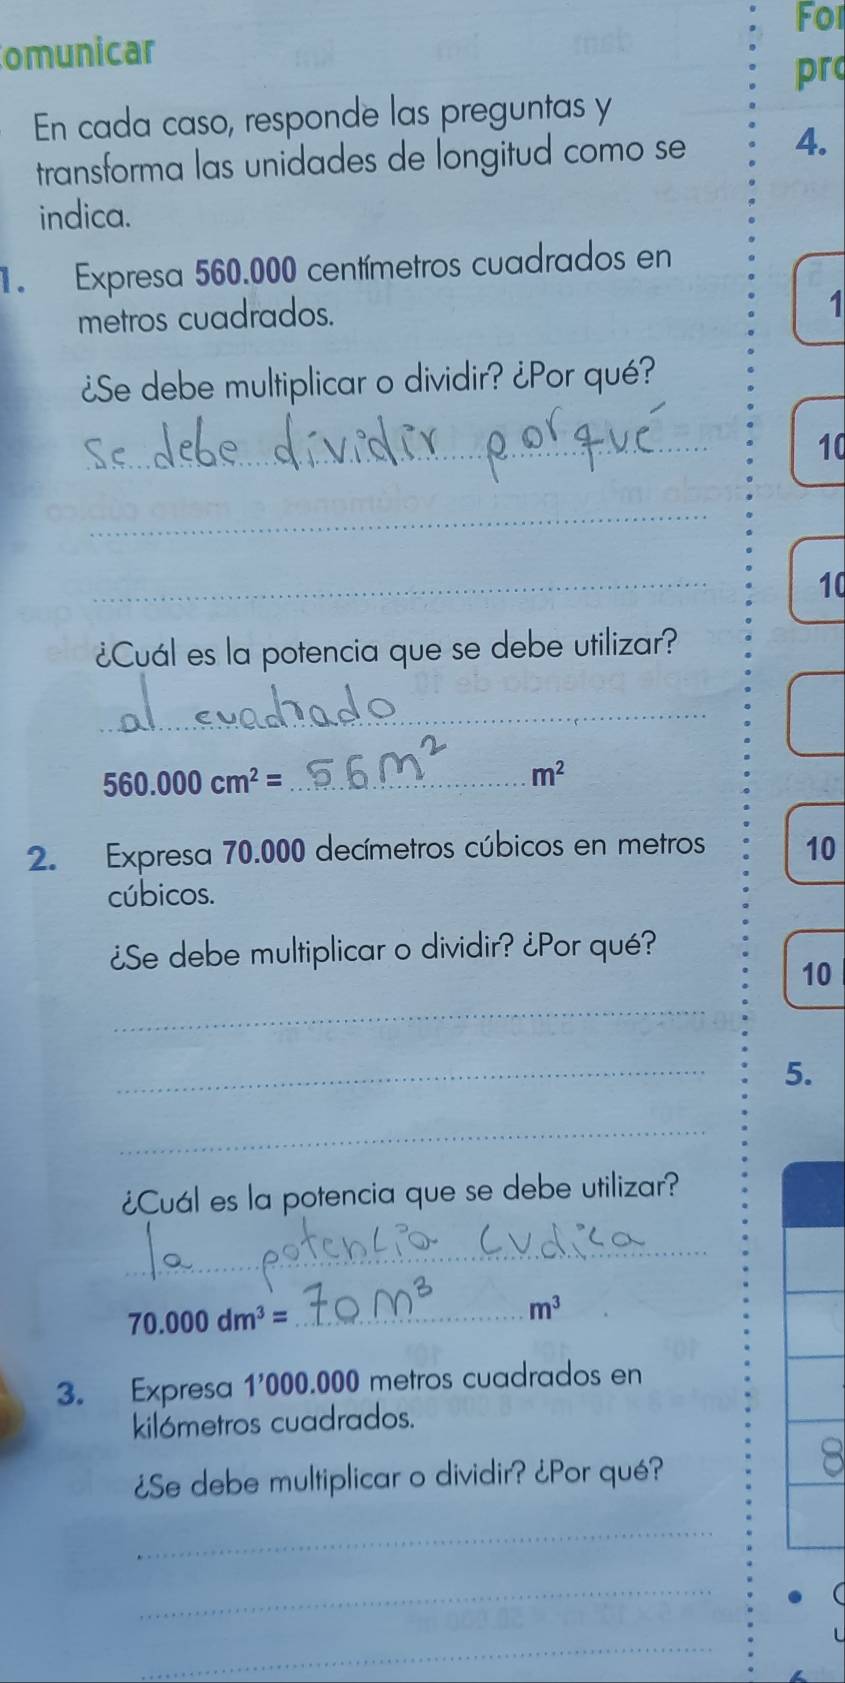 omunicar
En cada caso, responde las preguntas y
transforma las unidades de longitud como se
indica.
1. Expresa 560.000 centímetros cuadrados en
metros cuadrados.
¿Se debe multiplicar o dividir? ¿Por qué?
se debe dividir porqué
¿Cuál es la potencia que se debe utilizar?
al cuadrado
560.000 cm² = 56m² m²
2. Expresa 70.000 decímetros cúbicos en metros
cúbicos.
¿Se debe multiplicar o dividir? ¿Por qué?
¿Cuál es la potencia que se debe utilizar?
la potencia cudica
70.000 dm³ = 70m³ m³
3. Expresa 1'000.000 metros cuadrados en
kilómetros cuadrados.
¿Se debe multiplicar o dividir? ¿Por qué?
For
pro
4.
1
10
10
10
10
5.
8